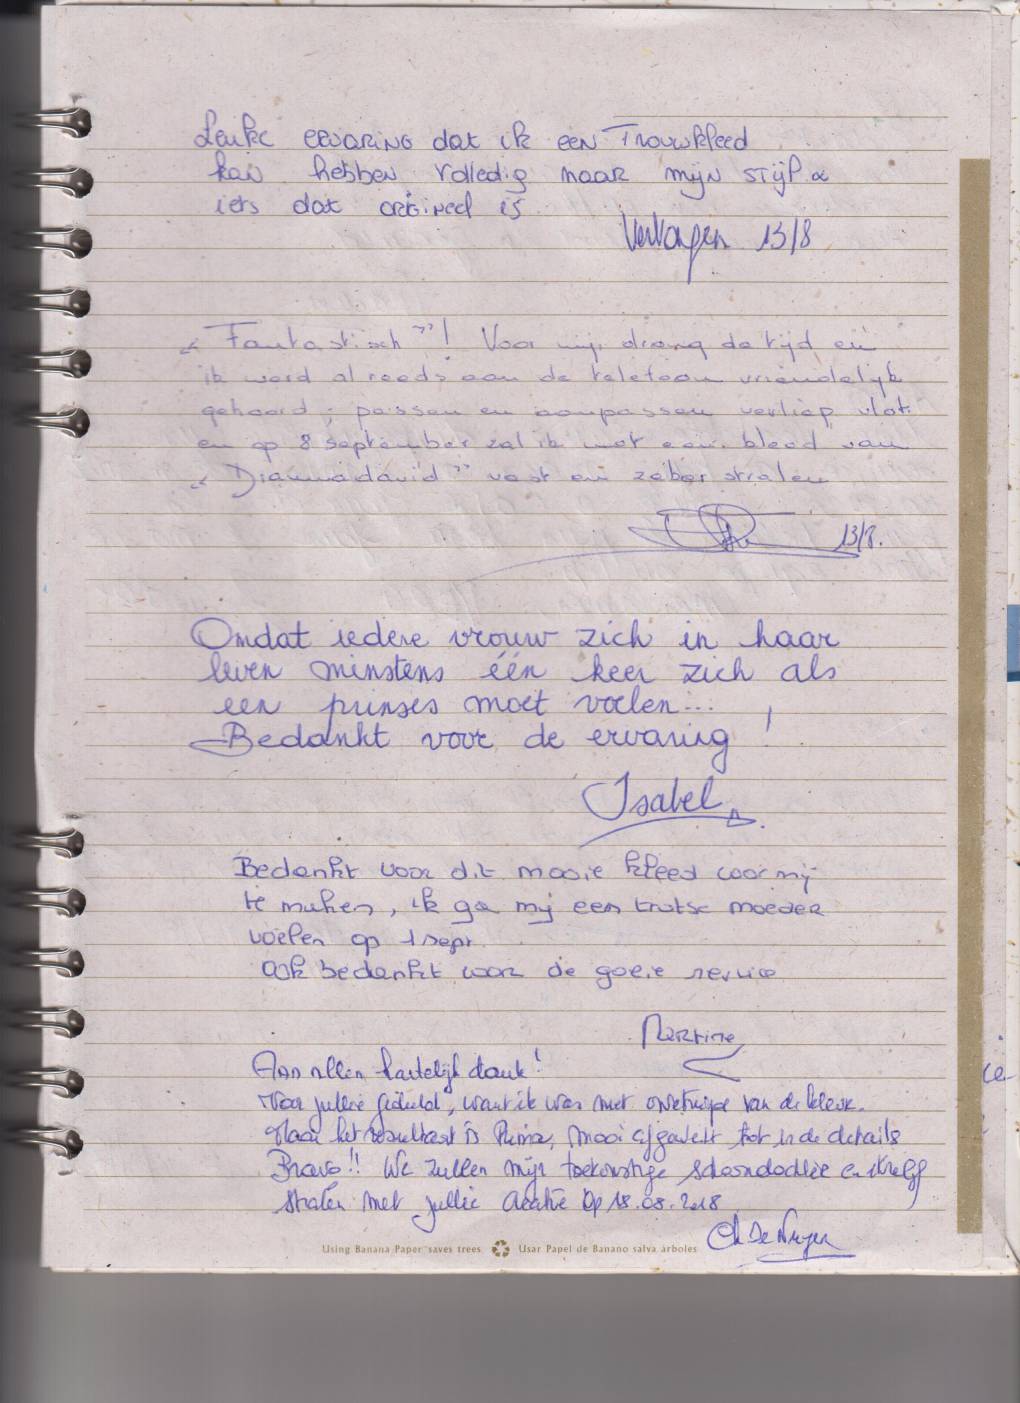 Leuke ervaring dat ik een Trouwkleed
kan hebben volledig naar mijn stijl &
iets dat origineel is
13/8
"Fantastisch"! Voor mij drong de tijd en
ik werd alreeds aan de telefoon vriendelijk
gehoord; passen en aanpassen verliep vlot
en op 8 september zal ik met een kleed van
"Diannadavid" vast en zeker stralen
13/8.
Omdat iedere vrouw zich in haar
leven minstens één keer zich als
een prinses moet voelen...
Bedankt voor de ervaring!
Isabel
Bedankt voor dit mooie kleed voor mij
te maken, ik ga mij een trotse moeder
voelen op 1 sept.
Ook bedankt voor de goeie service
Martine
Aan allen hartelijk dank!
Voor jullie geduld, want ik was niet van de kleur.
Maar het resultaat is Prima, mooi tot in de details
Bravo!! We zullen mijn toekomstige schoondochter en ikzelf
stralen met jullie creatie op 18.08.2018
Using Banana Paper saves trees Usar Papel de Banano salva árboles